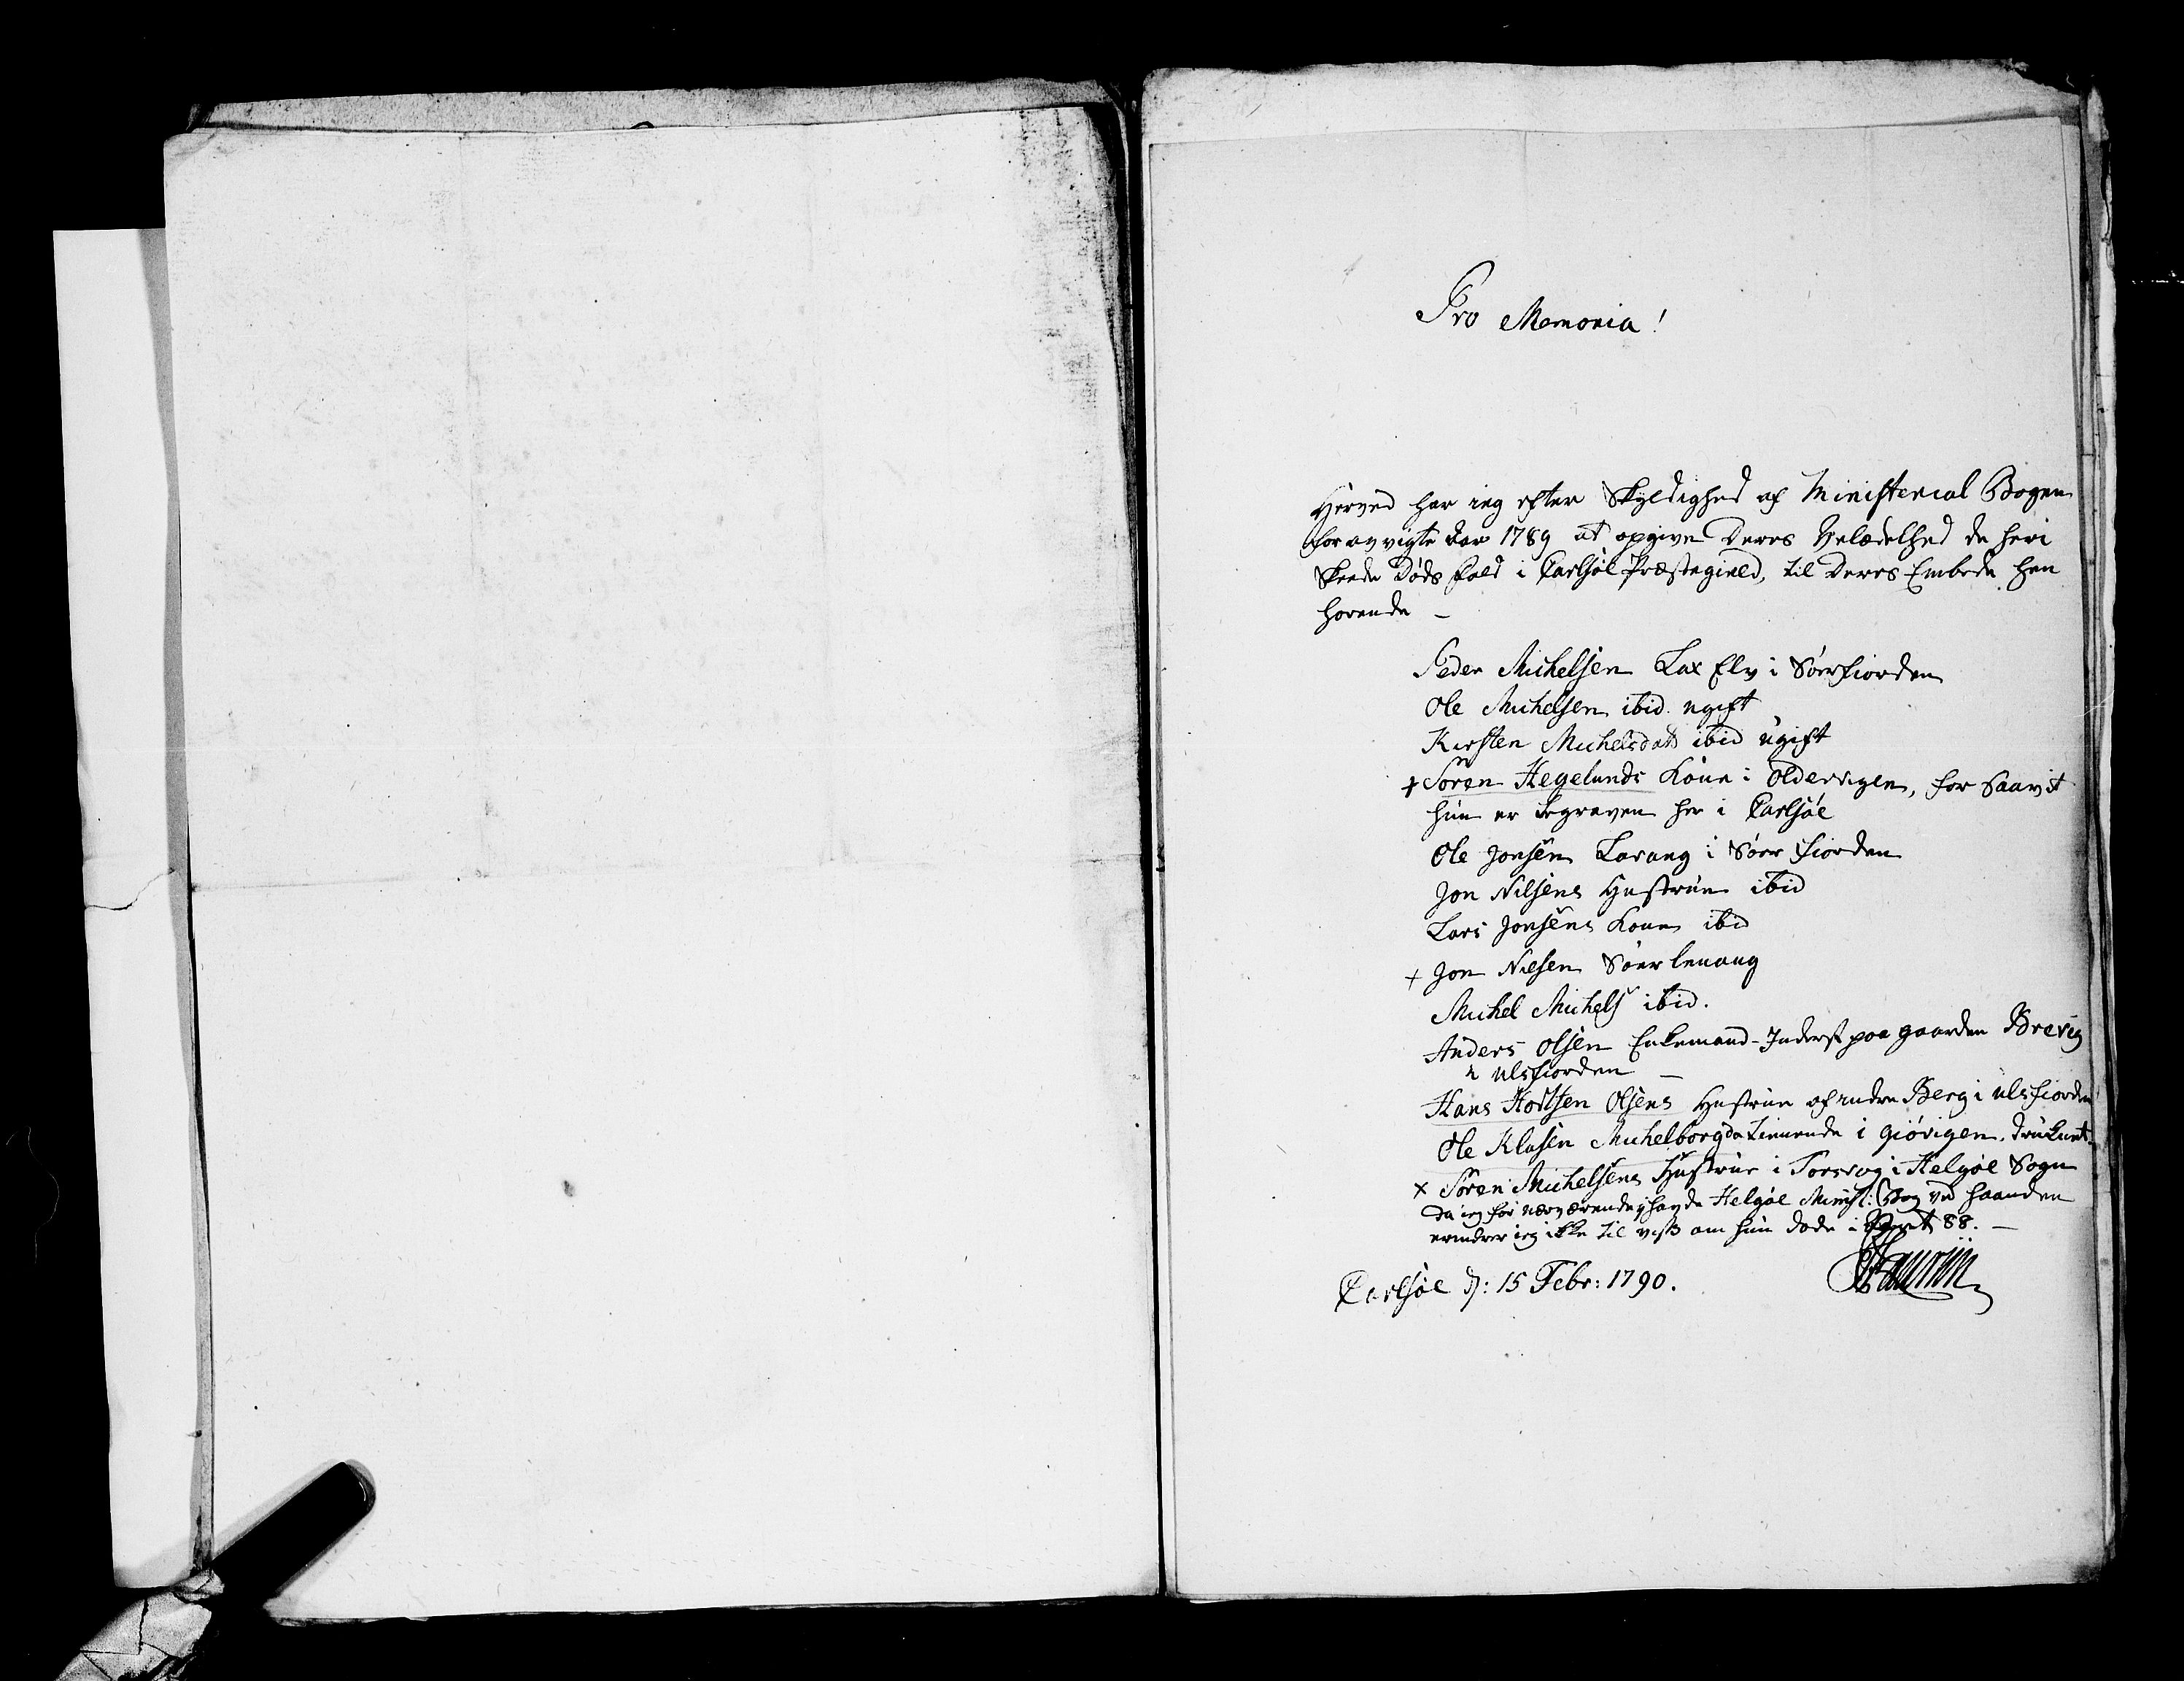 Pro Memoria!
Herved har ieg efter Skyldighed af Ministerial Bogen
for avvigte Aar 1789 at opgive Deres Velædelhed de heri
Skeede Døds fald i Carlsøe Præstegield, til Deres Embede hen
hørende –
Peder Michelsen Lax Elv i Sørfiorden
Ole Michelsen ibid. ugift
Kirsten Michelsdatt ibid ugift
+ Søren Hegelunds Kone i Oldervigen, for Saavit
hun er begraven her i Carlsøe
Ole Jonsen Lavang i Søer fiorden
Jon Nilsens Hustrue ibid
Lars Jonsens Kone ibid
+ Jon Nilsen Sørlenang
Michel Michels ibid.
Anders Olsen Enkemand - Inderst paa gaarden Brevig
i Ulsfiorden –
Hans Hortsen Olsens Hustrue af indre Berg i Ulsfiorden
Ole Klasen Michelborg da tienende i Giøvigen. druknet
x Søren Michelsens Hustrue i Torsvog i Helgøe Sogn
da ieg for nærværende ej havde Helgøe Minist: Bog ved haanden
erindrer ieg ikke til viss om hun døde i 88. –
Carlsøe d: 15 Febr: 1790.